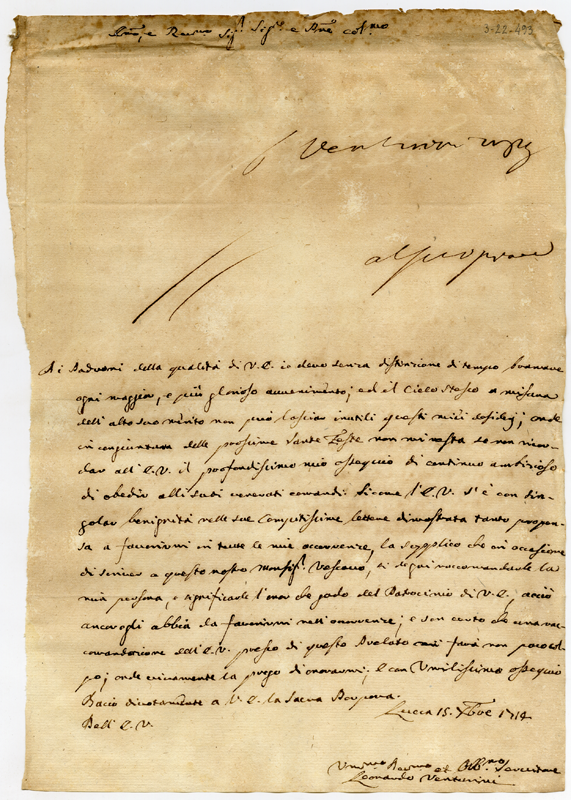 Revmo Sig.r Sig.r e Pne Colmo
3-22-493
Venturini
Ai Padroni della qualità di V.E. io devo senza distinzione di tempo bramare
ogni maggior, e più glorioso avvenimento; ed il Cielo stesso a misura
dell'alto suo merito non può lasciar inutili questi miei desiderj; onde
in congiuntura delle prossime Sante Feste non mi resta se non ricor-
dar all'E.V. il profondissimo mio ossequio di continuo ambizioso
di obedir alli suoi venerati comandi. Sicome l'E.V. s'è con sin-
golar benignità nelle sue Compitissime lettere dimostrata tanto propen-
sa a favorirmi in tutte le mie occorrenze, la supplico che in occasione
di scriver a questo nostro Monsig.r Vescovo, si degni raccomandarle la
mia persona, e significarle l'onor che godo del Patrocinio di V.E., acciò
ancor egli abbia da favorirmi nell'occorrenze; e son certo che una rac-
comandazione dell'E.V. presso di questo Prelato mi farà non poco
onde vivamente la prego d'onorarmi; e con Umilissimo ossequio
Bacio divotamente a V.E. la Sacra Porpora.
Lucca 15. Xbre 1714
Dell'E.V.
Umo Devmo et Obbmo Servitore
Leonardo Venturini